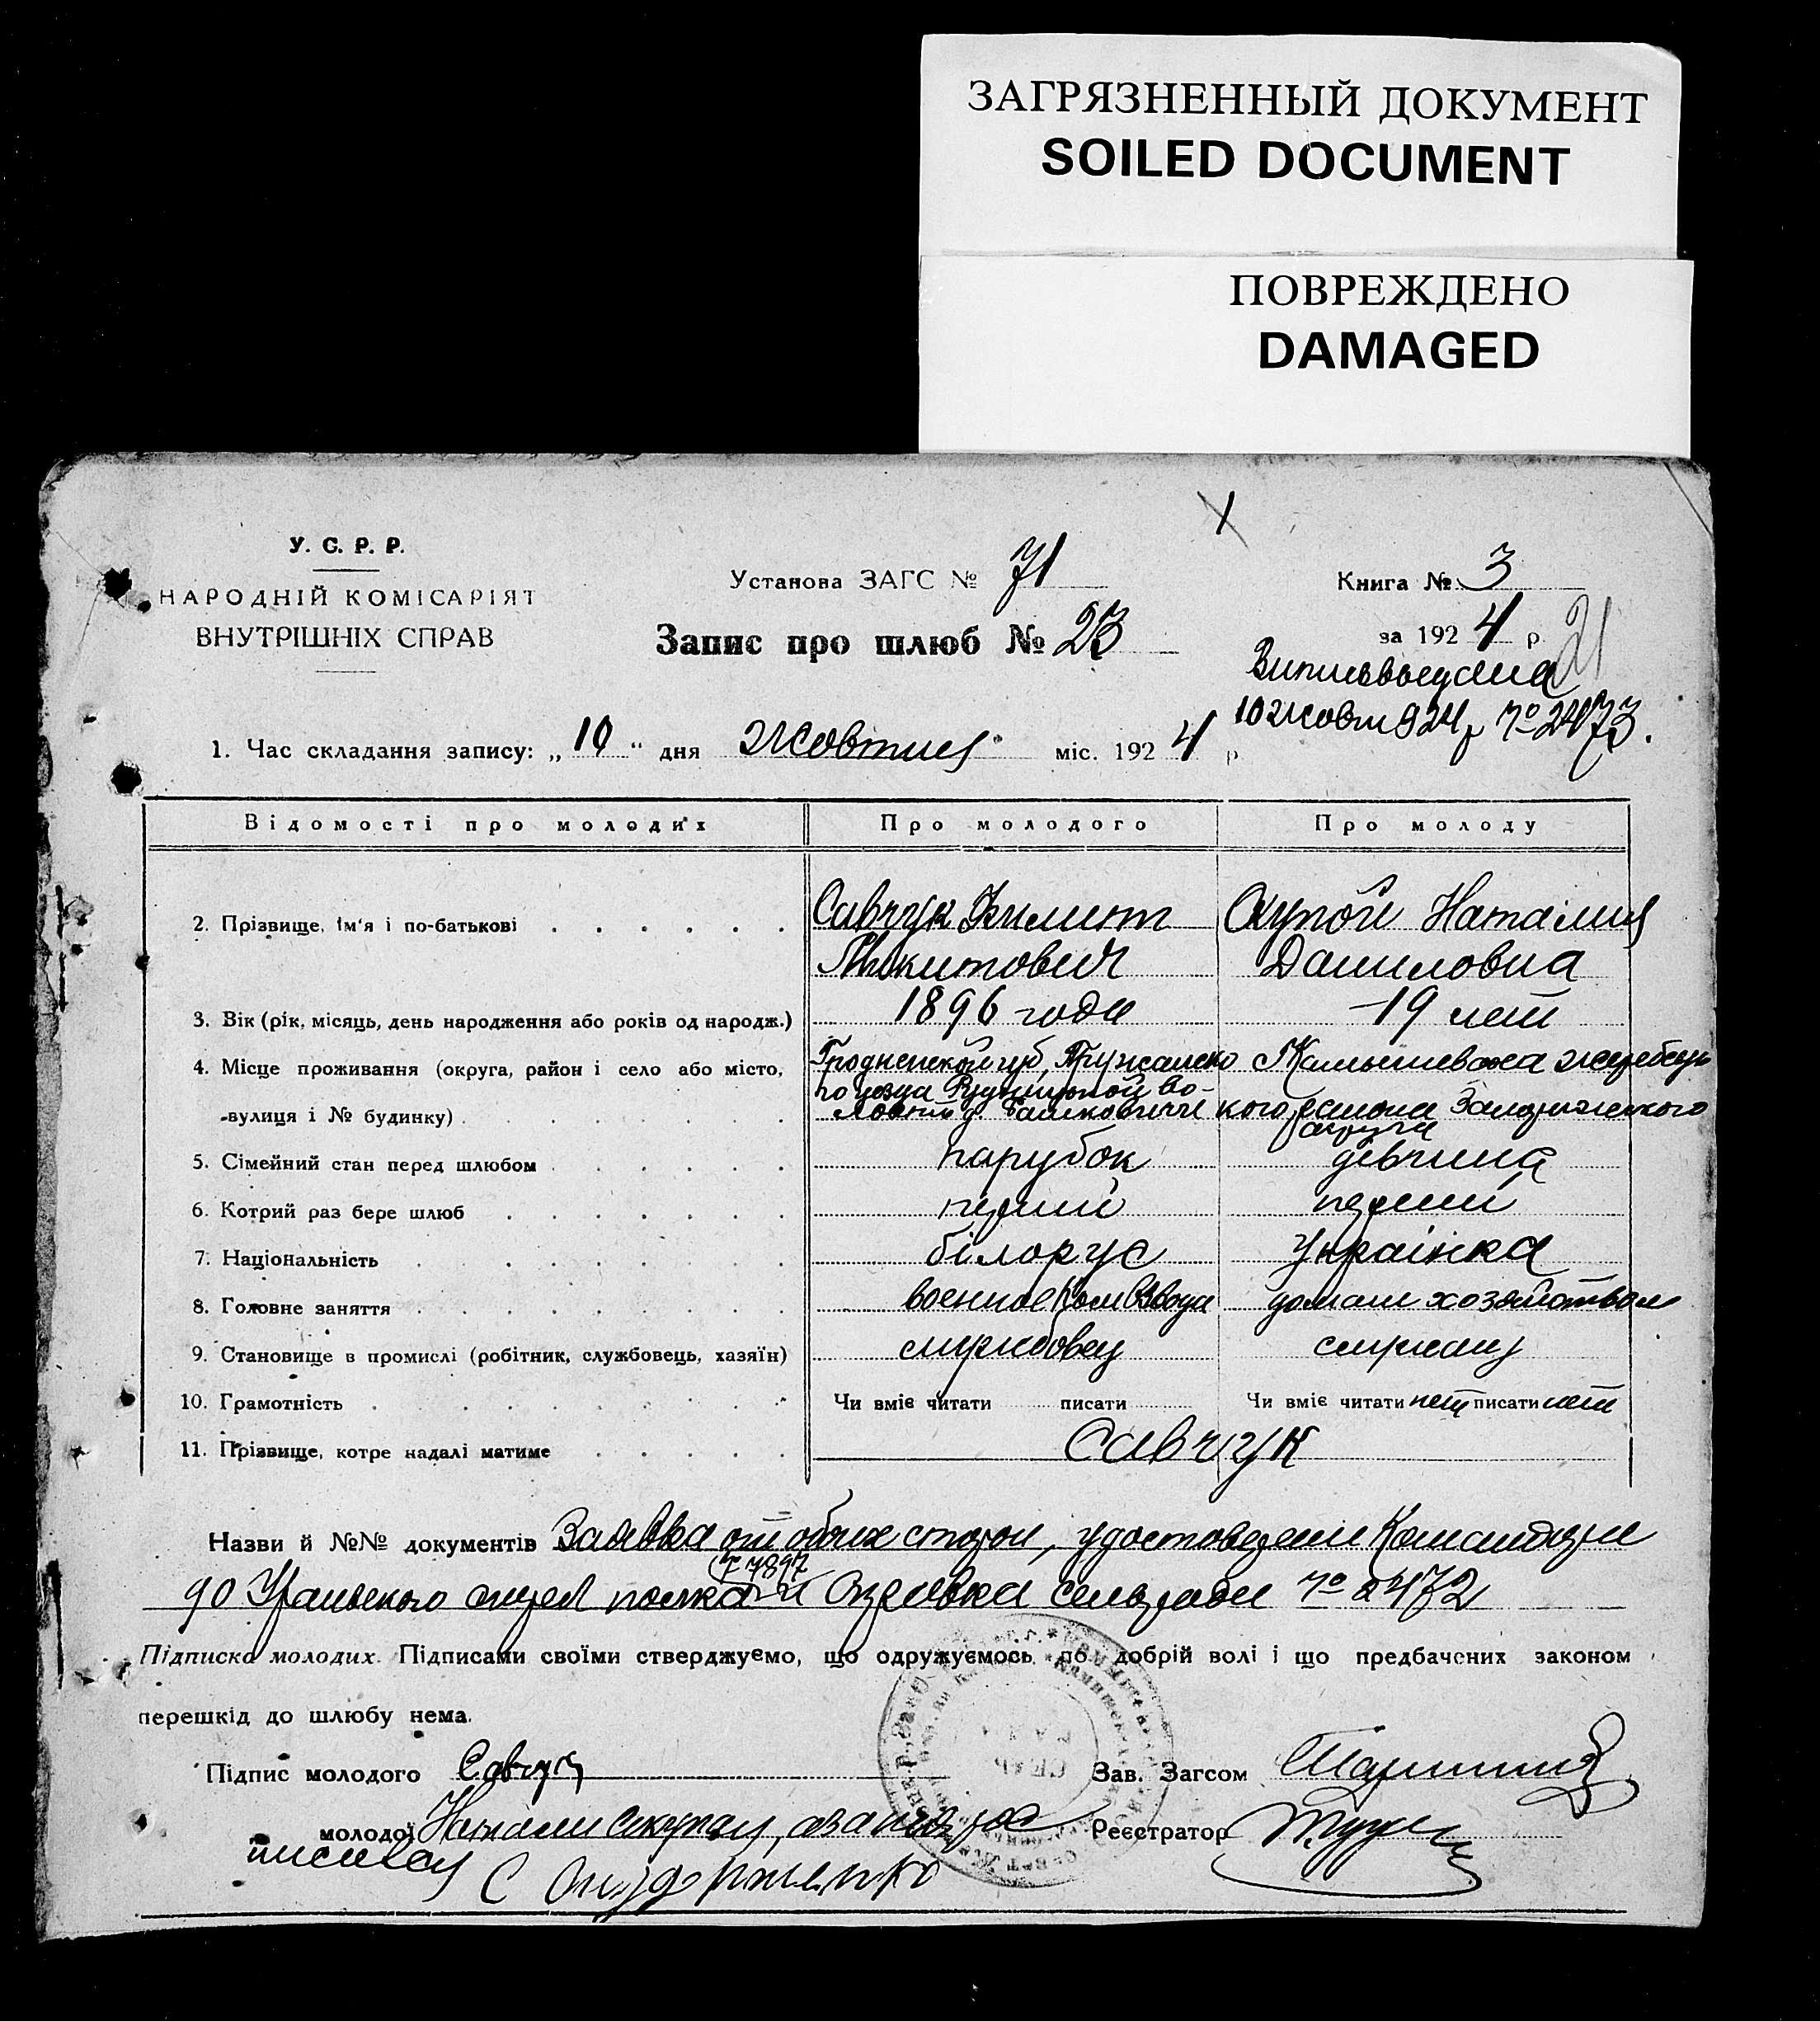 ЗАГРЯЗНЕННЫЙ ДОКУМЕНТ
SOILED DOCUMENT
ПОВРЕЖДЕНО
DAMAGED
У. С. Р. Р.
НАРОДНІЙ КОМІСАРІЯТ
ВНУТРІШНІХ СПРАВ
Установа ЗАГС № 71
Запис про шлюб № 23
Книга № 3
за 1924 р.
21
10 жовт 924 р № 2473.
1. Час складання запису: „10“ дня жовтня міс. 1924 р
Відомості про молодих Про молодого Про молоду
2. Прізвище, ім'я і по-батькові Савчук Наталия
Микитович Даниловна
3. Вік (рік, місяць, день народження або років од народж.) 1896 года 19 лет
4. Місце проживання (округа, район і село або місто, Гродненской губ, Пружанско Камышеваха жеребец
вулиця і № будинку) го уезда волости д. кого района Запорижского
округа
5. Сімейний стан перед шлюбом парубок дівчина
6. Котрий раз бере шлюб перший перший
7. Національність білорус Українка
8. Головне заняття военное Ком Взвода домаш хозяйством
9. Становище в промислі (робітник, службовець, хазяїн) службовец
10. Грамотність Чи вміє читати писати Чи вміє читати нет писати нет
11. Прізвище, котре надалі матиме Савчук
Назви й №№ документів Заявка от обоих сторон,
№ 7897
90 Уральского стрел полка и сельради № 2472
Підписка молодих. Підписами своїми стверджуємо, що одружуємось по добрій волі і що предбачених законом
перешкід до шлюбу нема.
Підпис молодого Савчук
Зав. Загсом
молодої
Реєстратор